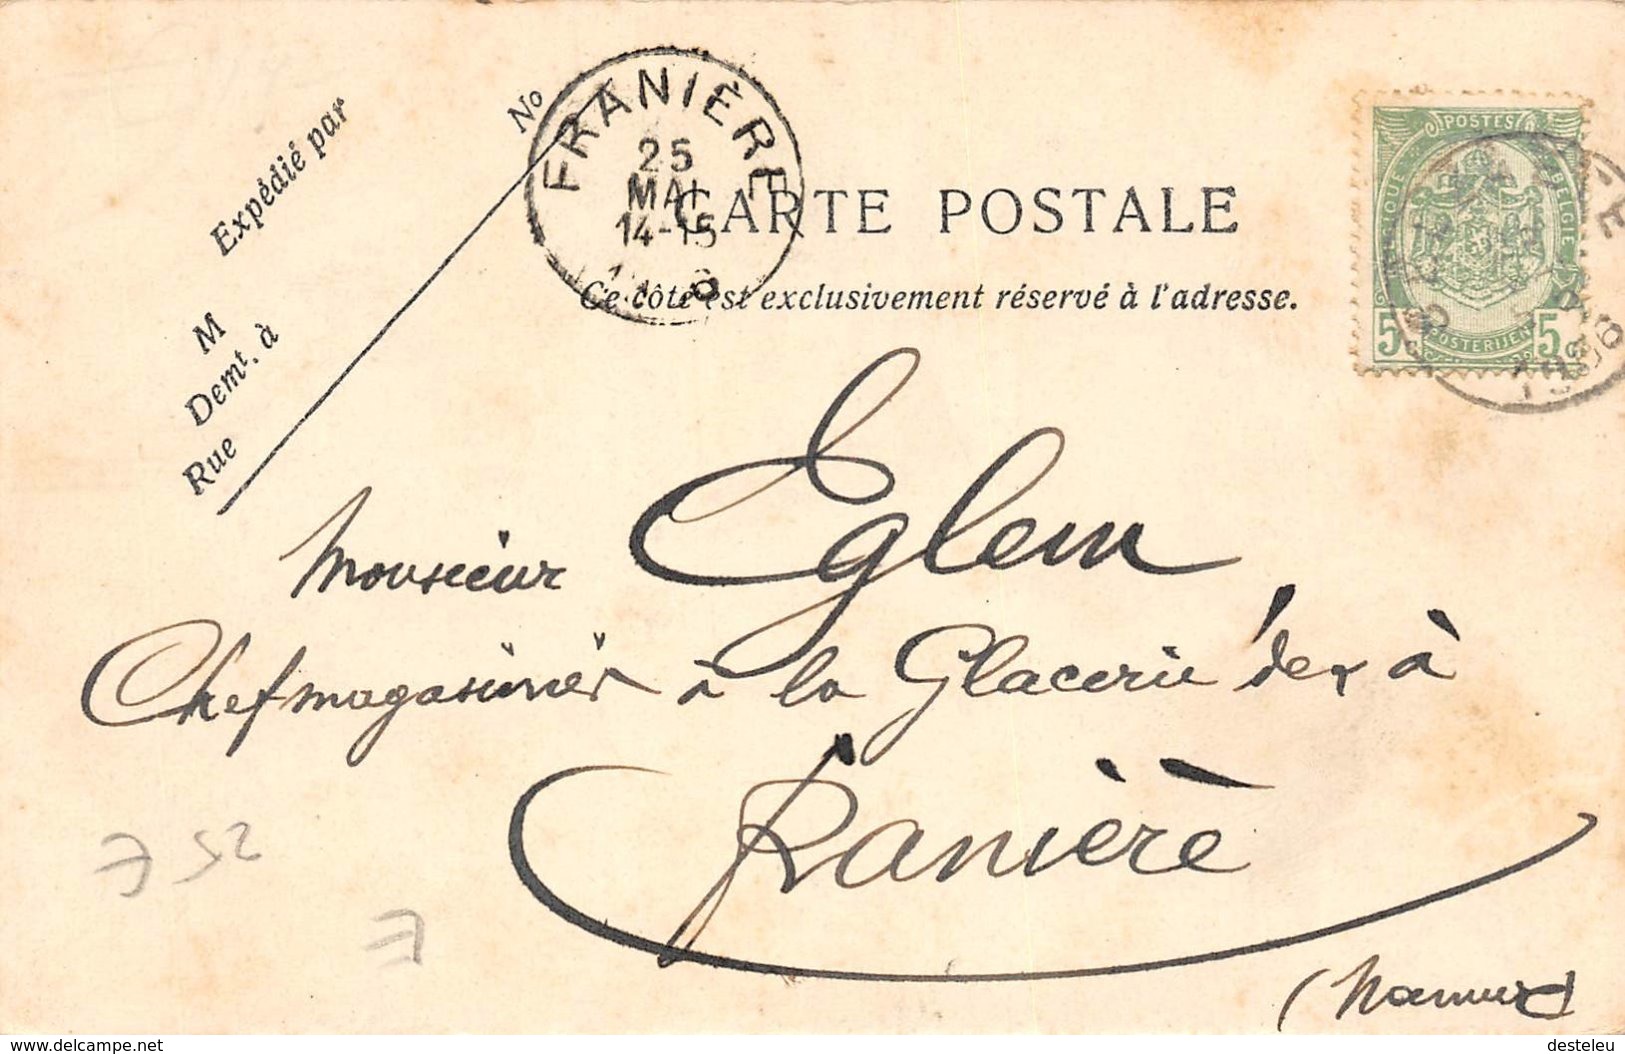 Expédié par
M
Demt. à
Rue
No
FRANIÈRE
25
MAI
14-15
CARTE POSTALE
Ce côté est exclusivement réservé à l'adresse.
POSTES
BELGIE
POSTERIJEN
5 5
Monsieur Eglem
Chef magasinier à la Glacerie
à
Franière
(Namur)
7 52
7
delcampe.net
desteleu